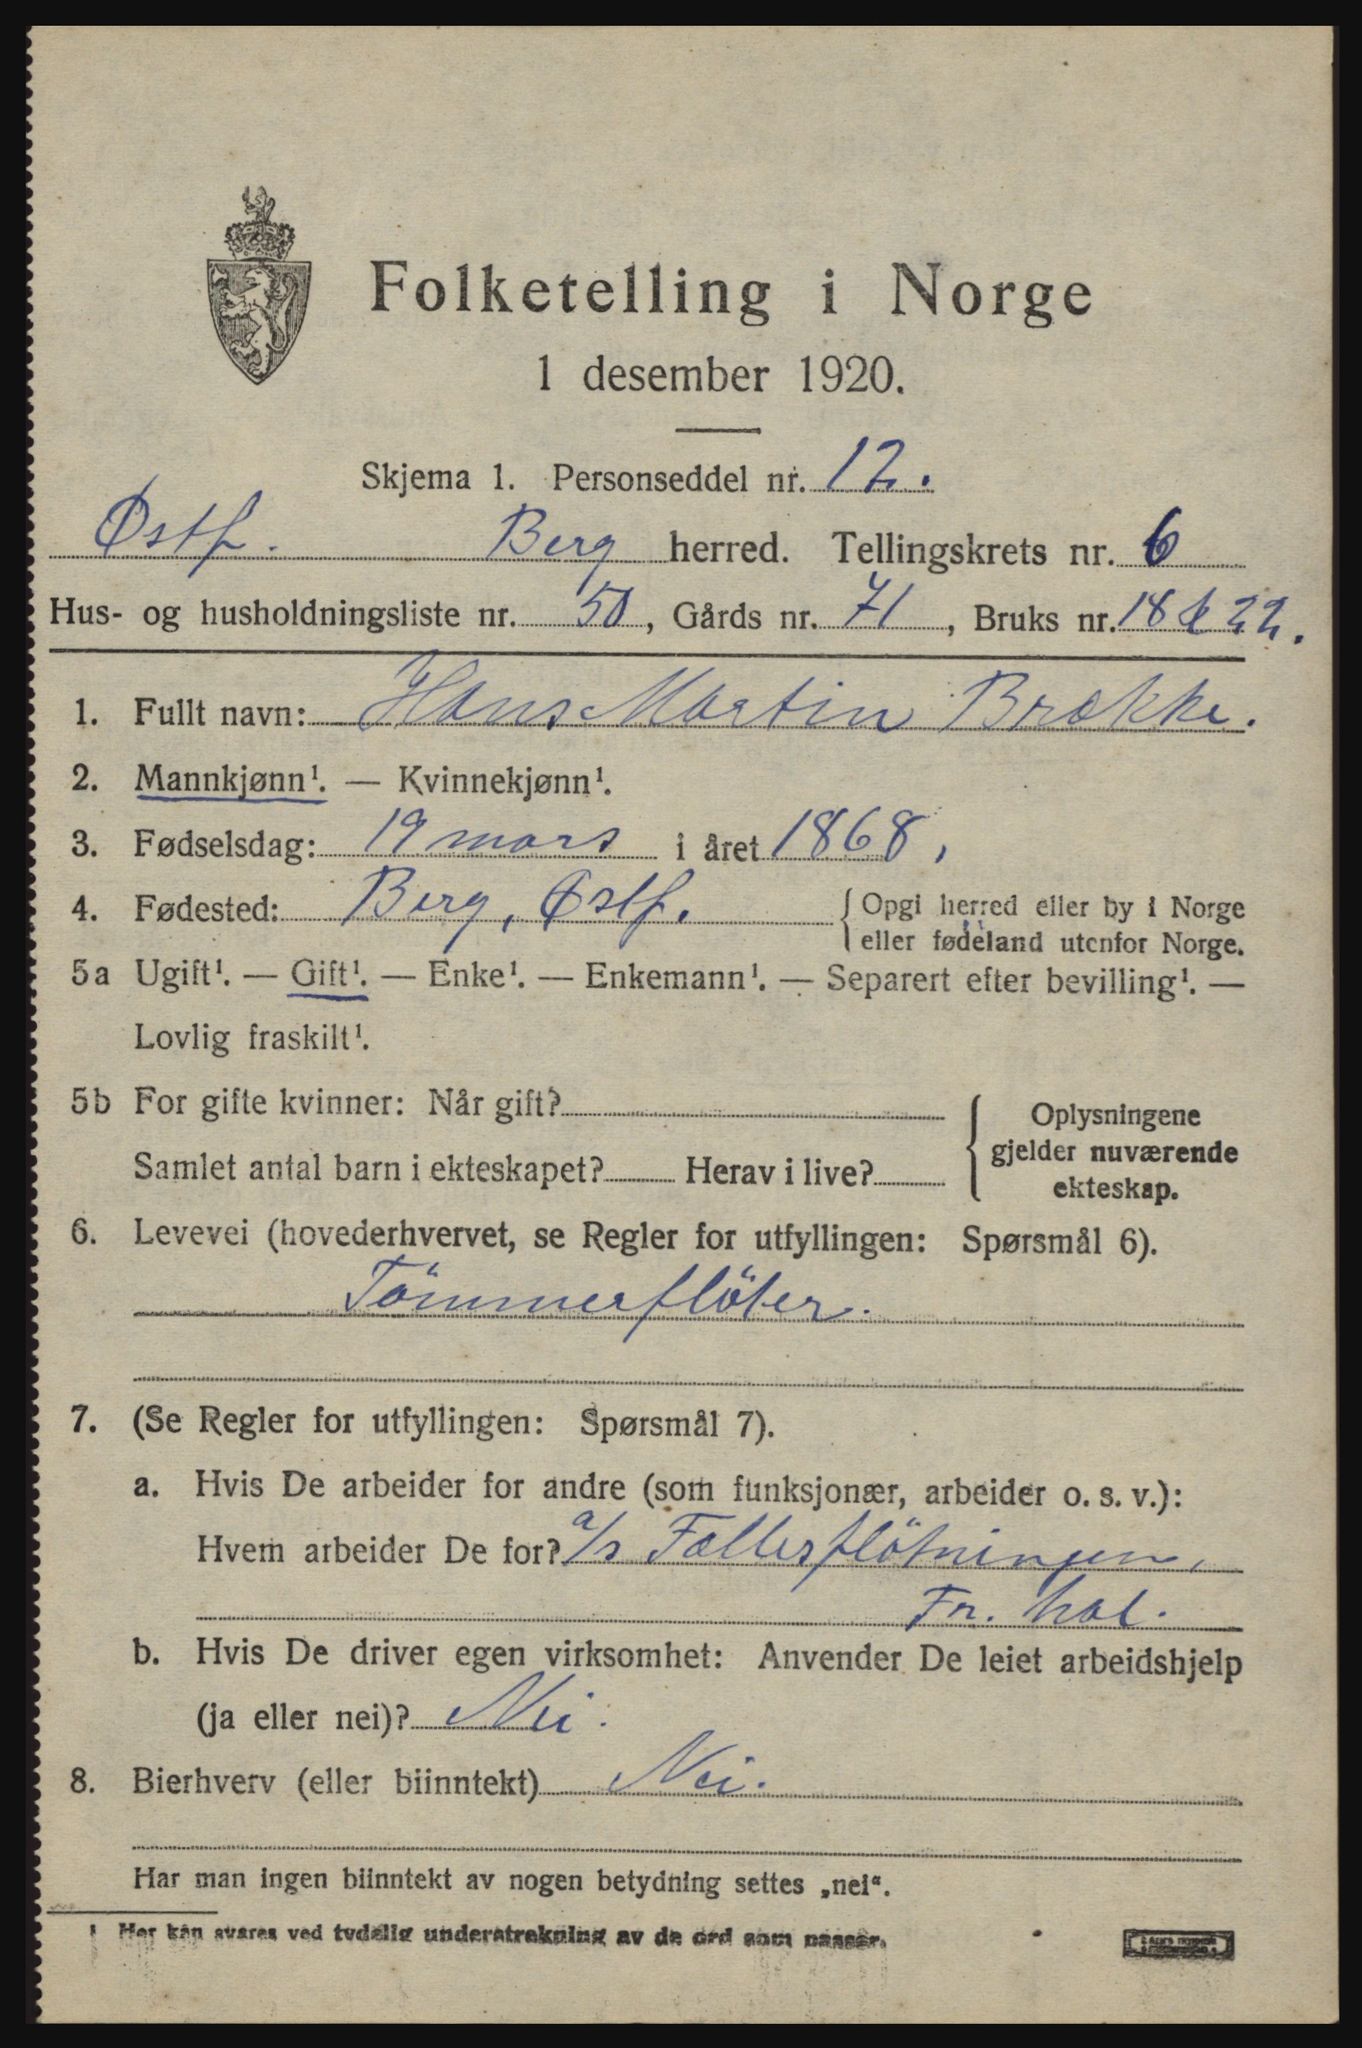 Folketelling i Norge
1 desember 1920.
Skjema 1. Personseddel nr. 12.
Østf. Berg herred. Tellingskrets nr. 6
Hus- og husholdningsliste nr. 50, Gårds nr. 71, Bruks nr. 18 & 22.
1. Fullt navn: Hans Martin Brække.
2. Mannkjønn¹. — Kvinnekjønn¹.
3. Fødselsdag: 19 mars i året 1868,
4. Fødested: Berg, Østf. { Opgi herred eller by i Norge
eller fødeland utenfor Norge.
5a Ugift¹. — Gift¹. — Enke¹. — Enkemann¹. — Separert efter bevilling¹. —
Lovlig fraskilt¹.
5b For gifte kvinner: Når gift? { Oplysningene
gjelder nuværende
Samlet antal barn i ekteskapet? Herav i live? ekteskap.
6. Levevei (hovederhvervet, se Regler for utfyllingen: Spørsmål 6).
Tömmerflöter.
7. (Se Regler for utfyllingen: Spørsmål 7).
a. Hvis De arbeider for andre (som funksjonær, arbeider o. s. v.):
Hvem arbeider De for? a/s Fællesflötningen,
Fr. hal.
b. Hvis De driver egen virksomhet: Anvender De leiet arbeidshjelp
(ja eller nei)? Nei.
8. Bierhverv (eller biinntekt) Nei.
Har man ingen biinntekt av nogen betydning settes „nei“.
1 Her kan svares ved tydelig understrekning av de ord som passer.